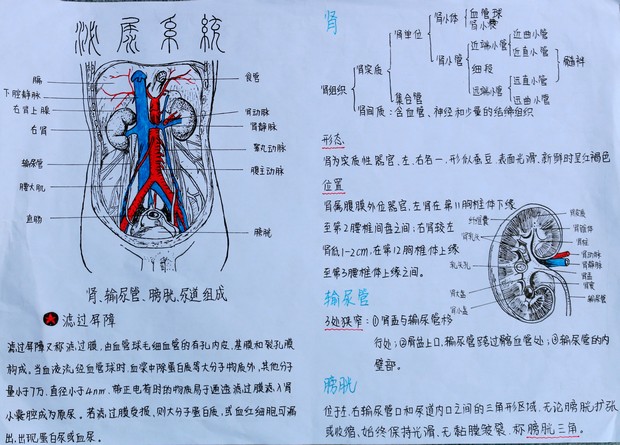 泌尿系統
膈
下腔静脉
右肾上腺
右肾
输尿管
腰大肌
直肠
食管
肾动脉
肾静脉
睾丸动脉
腹主动脉
膀胱
肾、输尿管、膀胱、尿道组成
滤过屏障
滤过屏障又称滤过膜，由血管球毛细血管的有孔内皮，基膜和裂孔膜
构成。当血液流经血管球时，血浆中除蛋白质等大分子物质外，其他分子
量小于7万，直径小于4nm，带正电荷时的物质易于通透滤过膜滤入肾
小囊腔成为原尿。若滤过膜受损，则大分子蛋白质，或血红细胞可漏
出，出现蛋白尿或血尿。
肾
肾组织
肾实质
肾单位
肾小体
血管球
肾小囊
肾小管
近端小管
近曲小管
近直小管
细段
远端小管
远直小管
远曲小管
髓袢
集合管
肾间质：含血管、神经和少量的结缔组织
形态
肾为实质性器官，左、右各一，形似蚕豆，表面光滑，新鲜时呈红褐色
位置
肾属腹膜外位器官，左肾在第11胸椎体下缘
至第2腰椎间盘之间；右肾较左
肾低1-2cm，在第12胸椎体上缘
至第3腰椎体上缘之间。
纤维囊
肾乳头
乳头孔
肾大盏
肾小盏
肾实质
肾锥体
肾柱
肾动脉
肾静脉
肾盂
肾窦
输尿管
输尿管
3处狭窄：①肾盂与输尿管移
行处；②骨盆上口，输尿管跨过髂血管处；③输尿管的内
壁部。
膀胱
位于左、右输尿管口和尿道内口之间的三角形区域，无论膀胱扩张
或收缩、始终保持光滑，无黏膜皱襞，称膀胱三角。